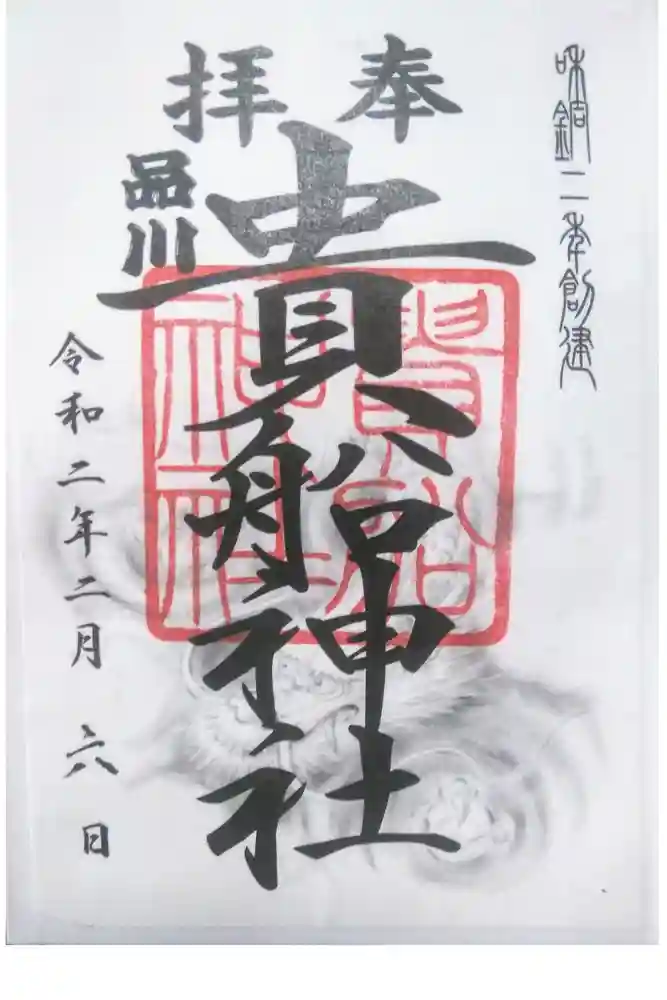 和銅二年創建
奉拝
品川
貴船神社
貴船神社
令和二年二月六日